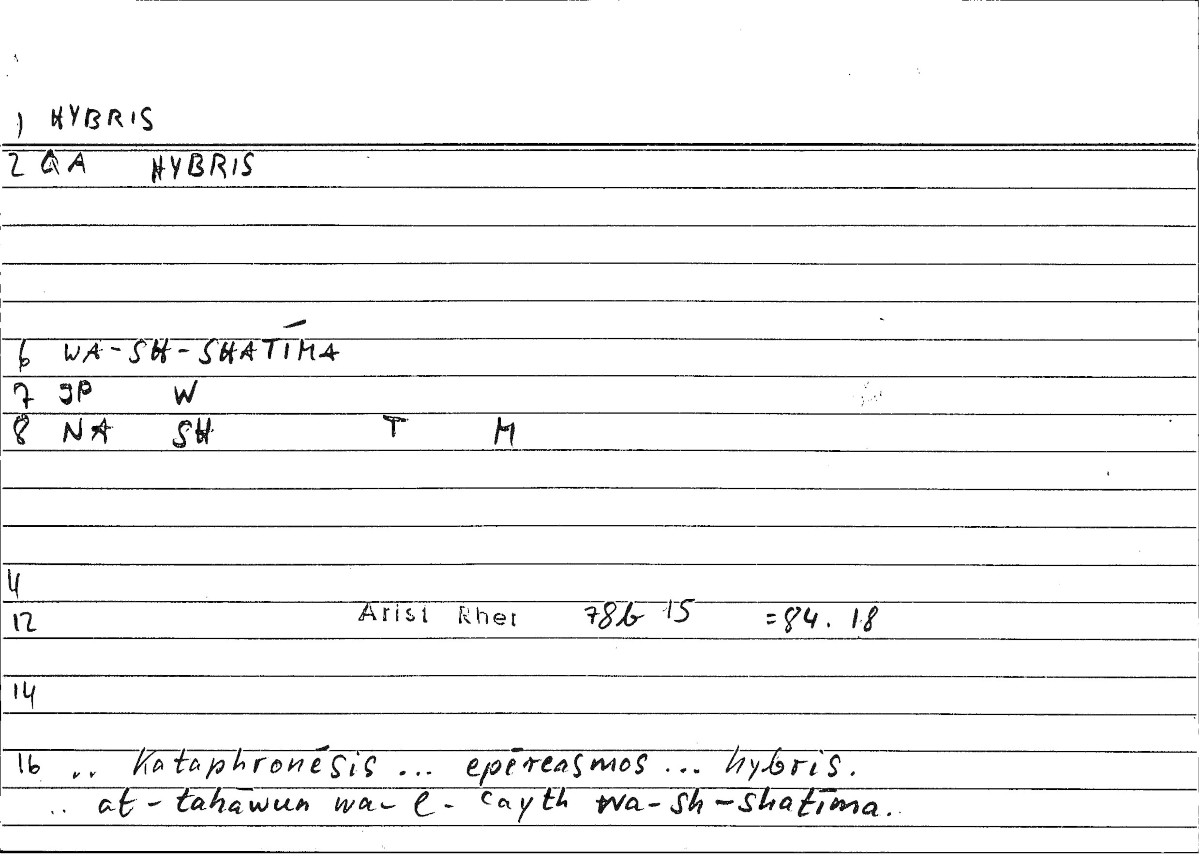 1 HYBRIS
2 QA HYBRIS
6 WA-SH-SHATĪMA
7 JP W
8 NA SH T M
4
12 Arist Rhet 78b 15 =84. 18
14
16 .. Kataphronēsis ... epēreasmos ... hybris.
.. at-tahāwun wa-l-ʿayth wa-sh-shatīma.